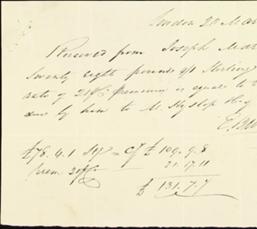 London 20 Mar
Received from Joseph Mar
Twenty eight pounds 4/1 Sterling
rate of premium is equals to
due by him to M. Hyslop
£78.4.1 Stg = Cy £109.9.8
prem. 21.17.11
£131.7.7